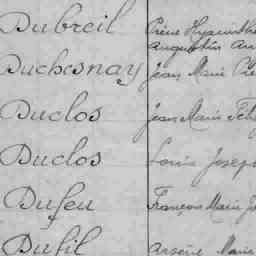 Dubreil Pierre Hyacinthe
Augustin
Duchesnay Jean Marie
Duclos Jean Marie
Duclos Louis Joseph
Dufeu François Marie
Dufil Arsène Marie